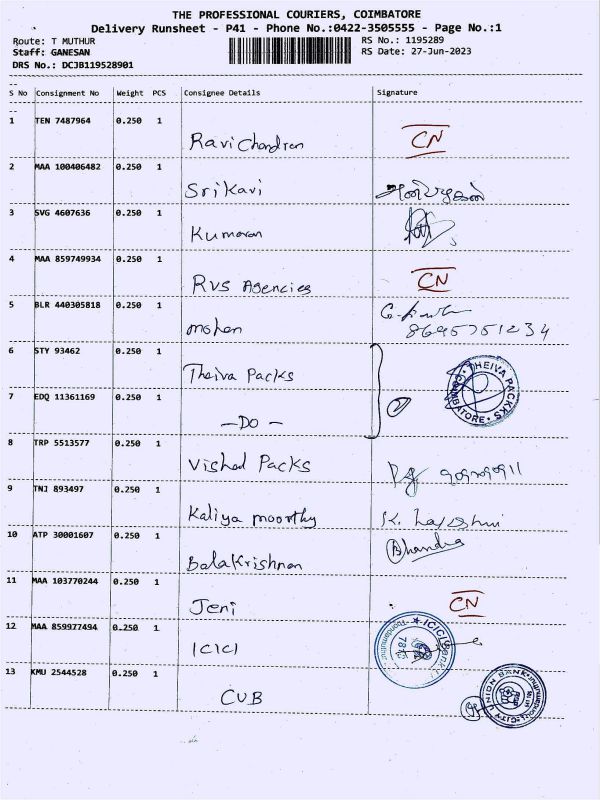 THE PROFESSIONAL COURIERS, COIMBATORE
Delivery Runsheet - P41 - Phone No.:0422-3505555 - Page No.:1
Route: T MUTHUR RS No.: 1195289
Staff: GANESAN RS Date: 27-Jun-2023
DRS No.: DCJB119528901
S No Consignment No Weight PCS Consignee Details Signature
1 TEN 7487964 0.250 1
Ravi Chandran CN
2 MAA 100406482 0.250 1
Srikavi
3 SVG 4607636 0.250 1
Kumaran
4 MAA 859749934 0.250 1
RVS Agencies CN
5 BLR 440305818 0.250 1
mohan 8695751234
6 STY 93462 0.250 1
Theiva Packs THEIVA PACKKS COIMBATORE
7 EDQ 11361169 0.250 1
- Do -
8 TRP 5513577 0.250 1
Vishal Packs
9 TNJ 893497 0.250 1
Kaliya moorthy K.
10 ATP 30001607 0.250 1
Balakrishnan Bhandra
11 MAA 103770244 0.250 1
Jeni CN
12 MAA 859977494 0.250 1
ICICI ICICI Bank
13 KMU 2544528 0.250 1
CUB CITY UNION BANK